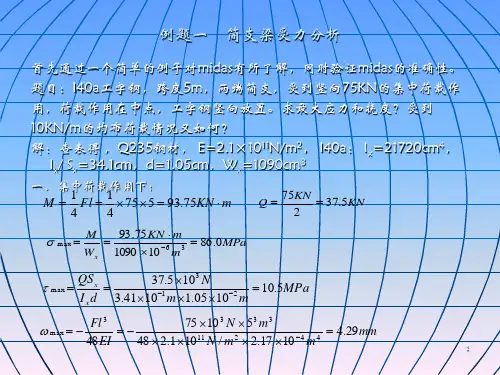 例题一 简支梁受力分析
首先通过一个简单的例子对midas有所了解，同时验证midas的准确性。
题目：I40a工字钢，跨度5m，两端简支，受到竖向75KN的集中荷载作
用，荷载作用在中点，工字钢竖向放置。求最大应力和挠度？受到
10KN/m的均布荷载情况又如何？
解：查表得，Q235钢材， E=2.1×10¹¹N/m²， I40a： Iₓ=21720cm⁴，
Iₓ/ Sₓ=34.1cm，d=1.05cm，Wₓ=1090cm³
一．集中荷载作用下：
M = 1/4 Fl = 1/4 ×75×5 = 93.75KN·m Q = 75KN/2 = 37.5KN
σmax = M/Wₓ = 93.75KN·m/(1090×10⁻⁶m³) = 86.0MPa
τmax = QSₓ/(Iₓd) = 37.5×10³N/(3.41×10⁻¹m×1.05×10⁻²m) = 10.5MPa
ωmax = −Fl³/(48EI) = −75×10³N×5³m³/(48×2.1×10¹¹N/m²×2.17×10⁻⁴m⁴) = 4.29mm